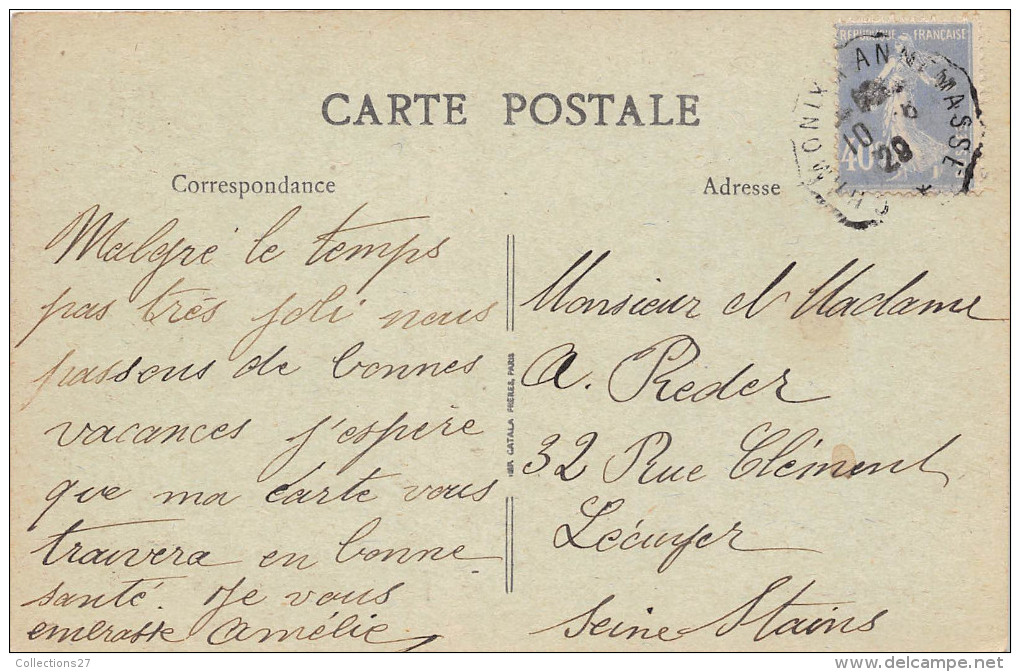 RÉPUBLIQUE FRANÇAISE
40c
10 -8
29
CARTE POSTALE
Correspondance
Malgré le temps
pas très joli nous
passons de bonnes
vacances j'espère
que ma carte vous
trouvera en bonne
santé. Je vous
embrasse Amélie
IMP. CATALA FRÈRES, PARIS
Adresse
Monsieur et Madame
A. Reder
32 Rue Clément
Lécuyer
Seine Stains
Collections27
http://www.delcampe.net